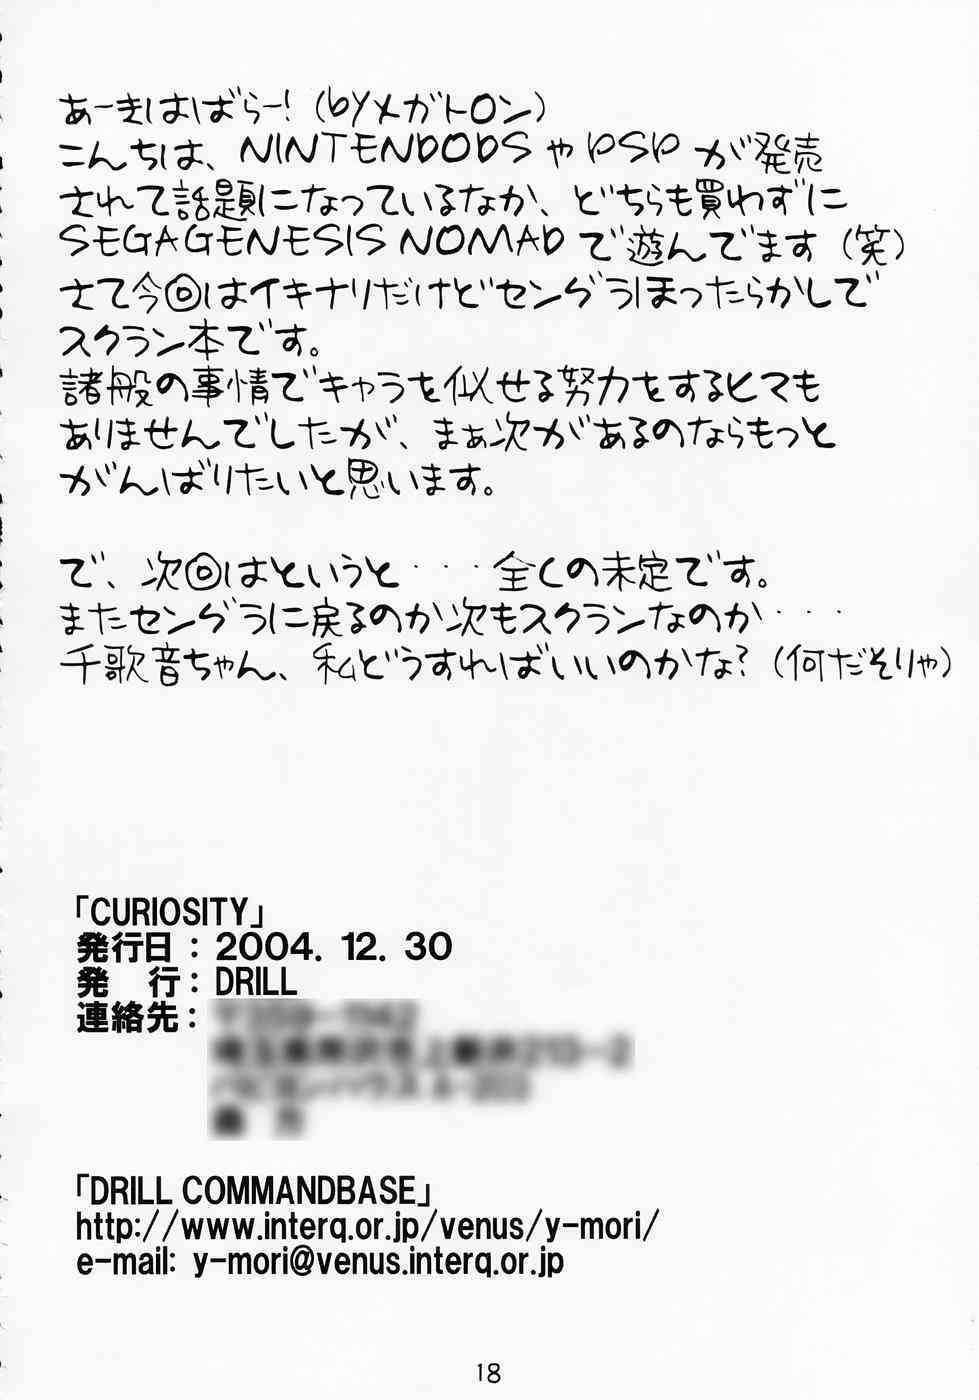 あーきはばらー!(byメガトロン)
こんちは、NINTENDODSやPSPが発売
されて話題になっているなか、どちらも買わずに
SEGAGENESIS NOMADで遊んでます(笑)
さて今回はイキナリだけどセングラほったらかしで
スクラン本です。
諸般の事情でキャラを似せる努力をするヒマも
ありませんでしたが、まぁ次があるのならもっと
がんばりたいと思います。
で、次回はというと・・・全くの未定です。
またセングラに戻るのか次もスクランなのか・・・
千歌音ちゃん、私どうすればいいのかな?(何だそりゃ)
「CURIOSITY」
発行日：2004. 12. 30
発　行：DRILL
連絡先：
「DRILL COMMANDBASE」
http://www.interq.or.jp/venus/y-mori/
e-mail: y-mori@venus.interq.or.jp
18